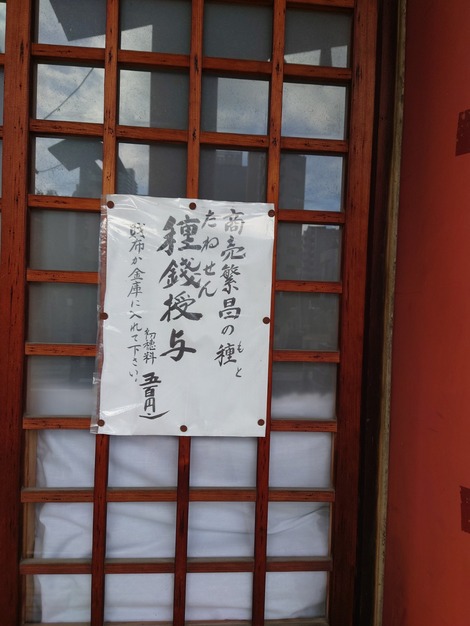 商売繁昌の種
もと
たねせん
種銭授与
初穂料 五百円
財布か金庫に入れて下さい。